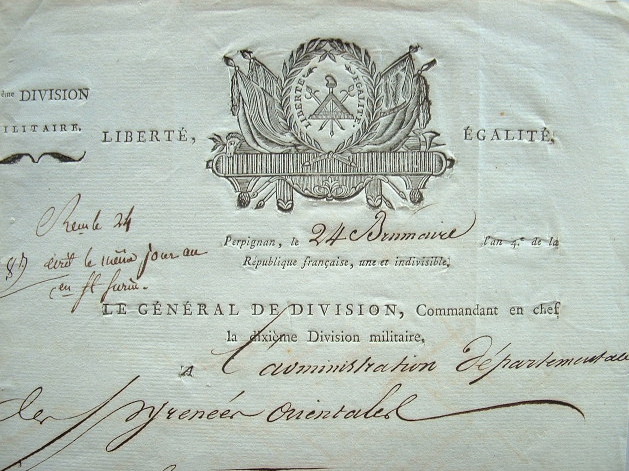 ème DIVISION
ILITAIRE.
LIBERTÉ,
LIBERTÉ ÉGALITÉ
ÉGALITÉ,
24
écrit le même jour au
en
Perpignan, le 24 Brumaire l'an 4.e de la
République française, une et indivisible;
LE GÉNÉRAL DE DIVISION, Commandant en chef
la dixième Division militaire,
a L'administration Départementale
des Pyrenées orientales